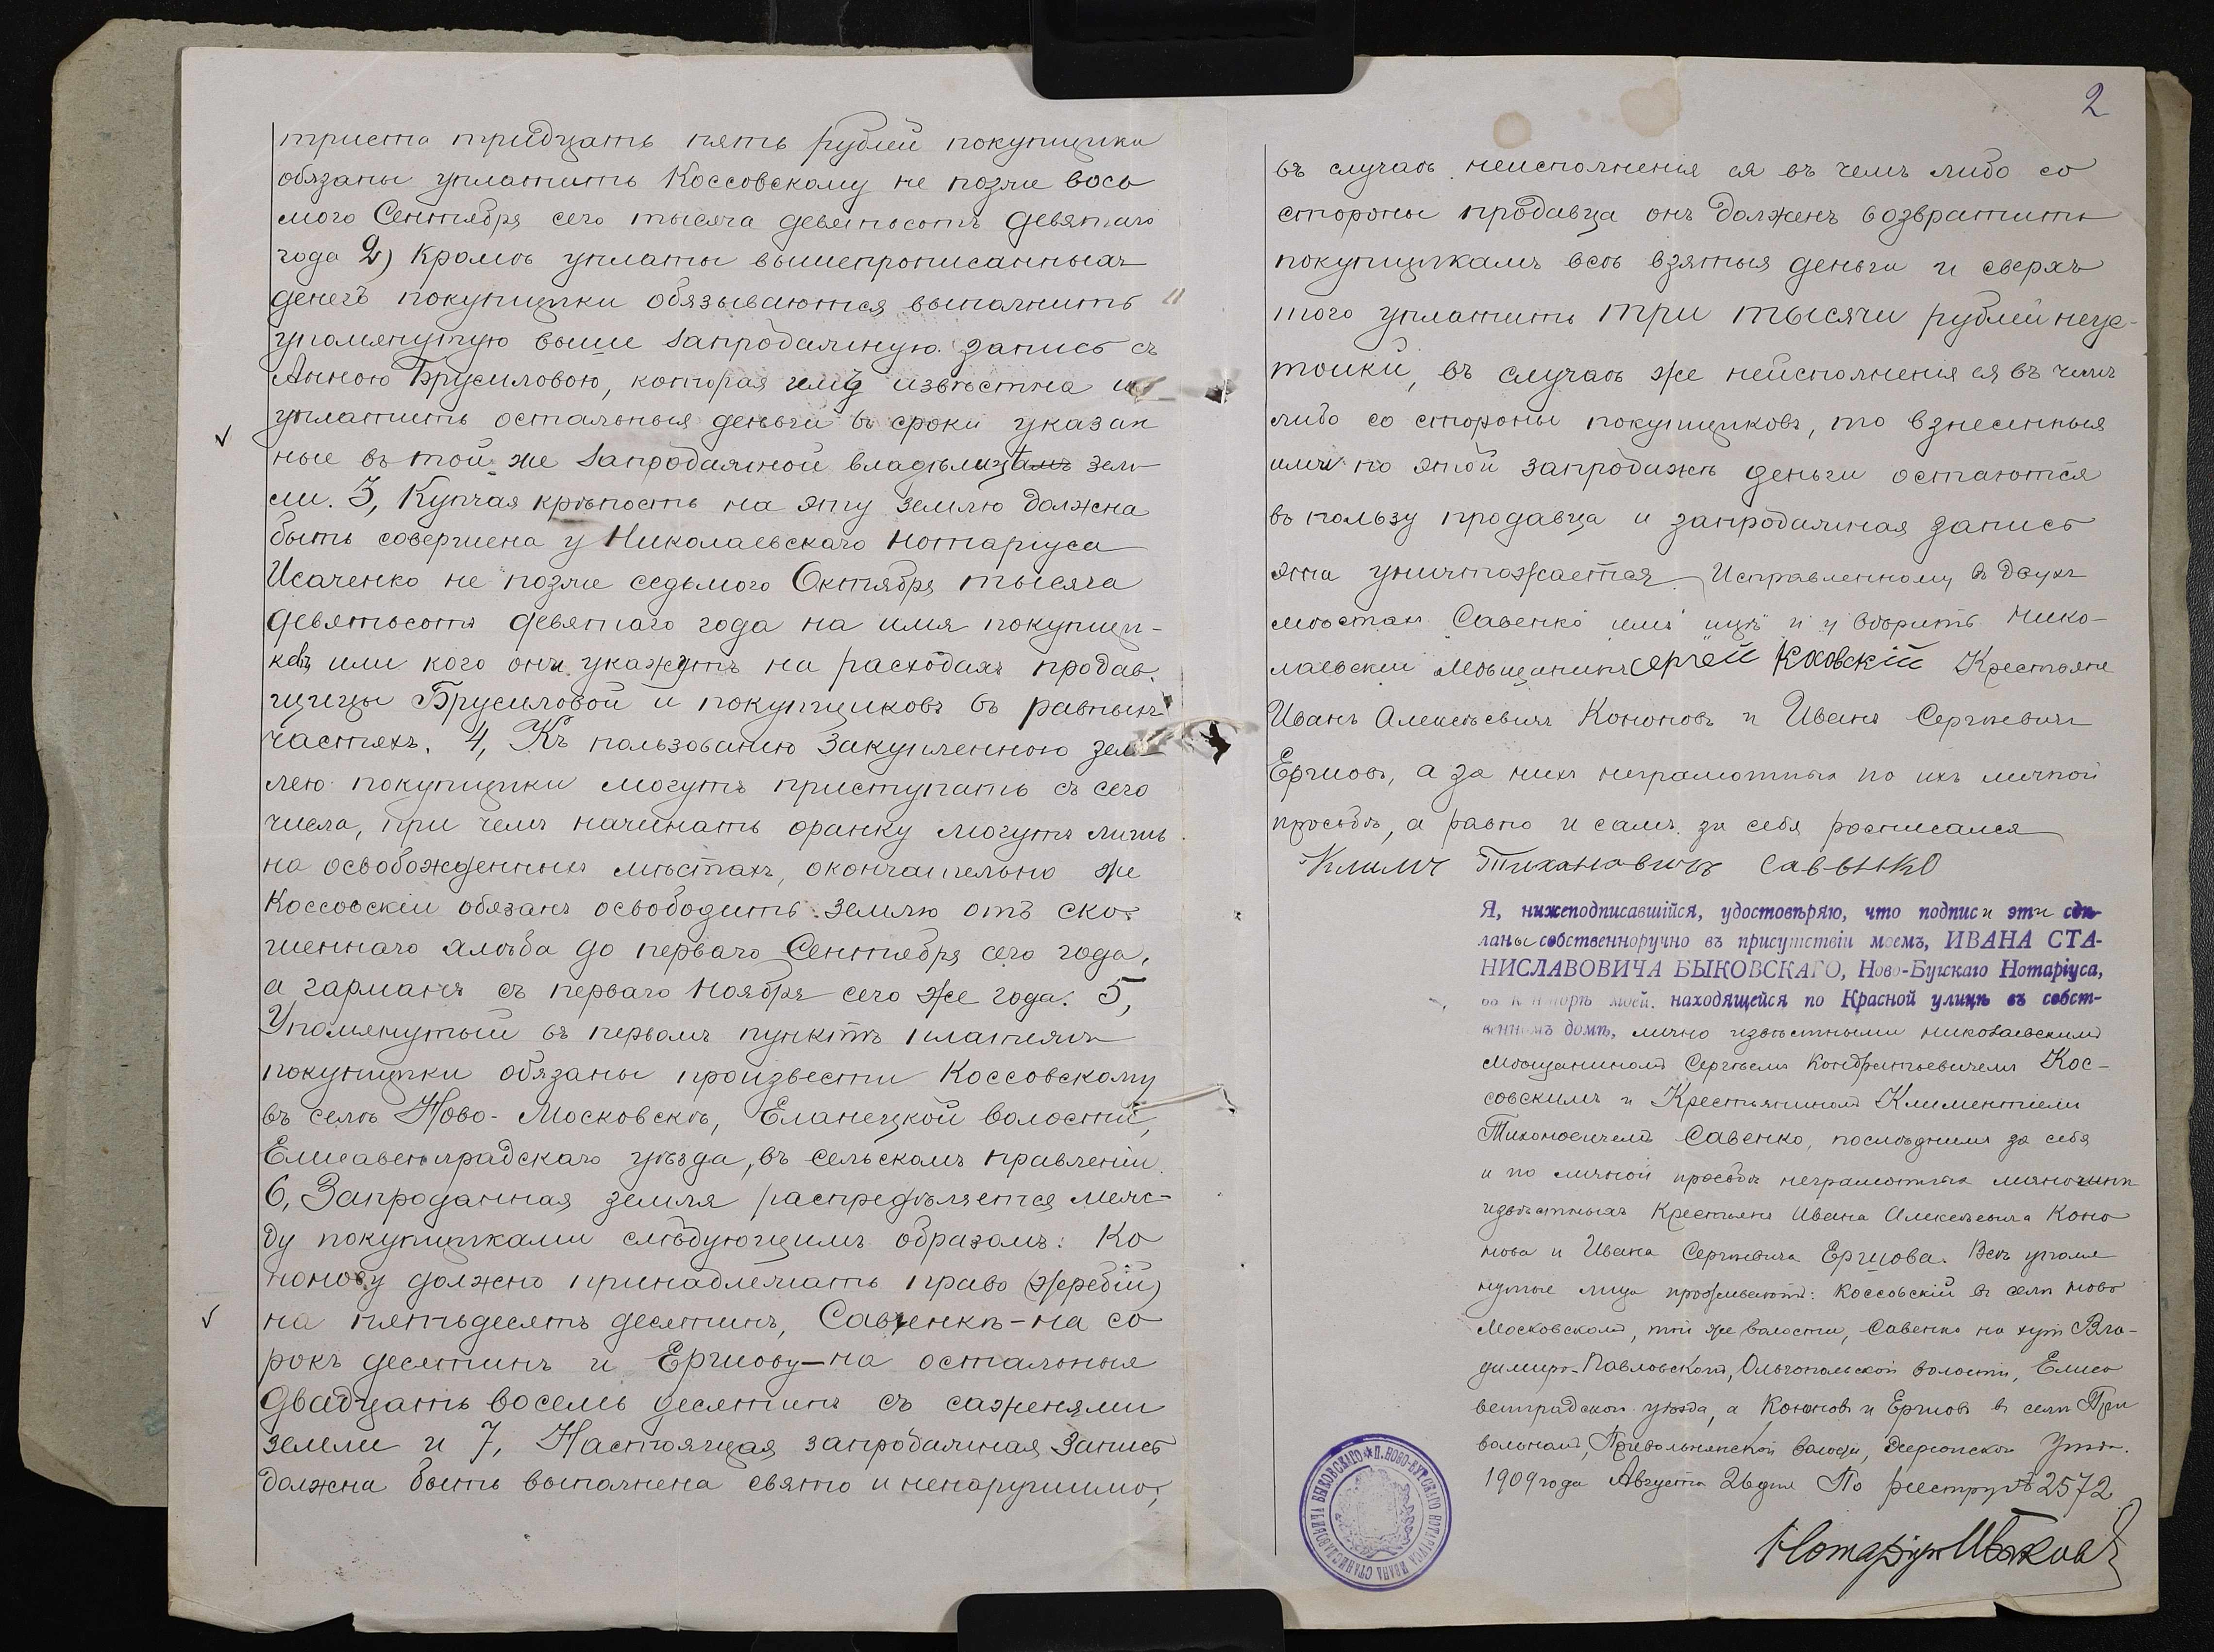 триста тридцать пять рублей покупщики
обязаны уплатить Коссовскому не позже вось
мого Сентября сего тысяча девятьсотъ девятаго
года 2) Кромѣ уплаты вышепрописанныхъ
денегъ покупщики обязываются выполнить
упомянутую выше запродажную запись съ
Анною Брусиловою, которая имъ извѣстна и
уплатить остальныя деньги въ сроки указан
ные въ той же запродажной владѣлицѣ зем-
ли. 3, Купчая крѣпость на эту землю должна
быть совершена у Николаевскаго Нотаріуса
Исаченко не позже седьмого Октября тысяча
девятьсотъ девятаго года на имя покупщи-
ковъ или кого они укажутъ на расходахъ продав-
щицы Брусиловой и покупщиковъ въ равныхъ
частяхъ. 4, Къ пользованію закупленною зем
лею покупщики могутъ приступать съ сего
числа, при чемъ начинать оранку могутъ лишь
на освобожденныхъ мѣстахъ, окончательно же
Коссовскій обязанъ освободить землю отъ ско-
шеннаго хлѣба до перваго Сентября сего года,
а гарманъ съ перваго Ноября сего же года. 5,
Упомянутый въ первомъ пунктѣ платежъ
покупщики обязаны произвести Коссовскому
въ селѣ Ново-Московскѣ, Еланецкой волости,
Елисаветградскаго уѣзда, въ сельскомъ правленіи.
6, Запроданная земля распредѣляется меж-
ду покупщиками слѣдующимъ образомъ: Ко
нонову должно принадлежать право (жребій)
на пятьдесятъ десятинъ, Савенкѣ-на со
рокъ десятинъ и Ершову-на остальныя
двадцать восемь десятинъ съ саженями
земли и 7, Настоящая запродажная запись
должна быть выполнена свято и ненарушимо,
2
въ случаѣ неисполненія ея въ чемъ либо со
стороны продавца онъ долженъ возвратить
покупщикамъ всѣ взятыя деньги и сверхъ
того уплатить три тысячи рублей неус-
тойки, въ случаѣ же неисполненія ея въ чемъ
либо со стороны покупщиковъ, то взнесенныя
ими по этой запродажѣ деньги остаются
въ пользу продавца и запродажная запись
эта уничтожается. Исправленному въ двухъ
мѣстахъ Савенко имъ ицѣ и у вѣрить Нико-
лаевскій Мѣщанинъ Сергѣй Коовскій Крестьяне
Иванъ Алексѣевичъ Кононовъ и Иванъ Сергѣевичъ
Ершовъ, а за нихъ неграмотныхъ по ихъ личной
просьбѣ, а равно и самъ за себя росписался
Климъ Тихановичъ Савенко
Я, нижеподписавшійся, удостовѣряю, что подписи эти сдѣ-
ланы собственноручно въ присутствіи моемъ, ИВАНА СТА-
НИСЛАВОВИЧА БЫКОВСКАГО, Ново-Бугскаго Нотаріуса,
въ конторѣ моей, находящейся по Красной улицѣ въ собст-
венномъ домѣ, лично извѣстными николаевскимъ
Мѣщаниномъ Сергѣемъ Кондратьевичемъ Кос-
совскимъ и Крестьяниномъ Климентіемъ
Тихоновичемъ Савенко, послѣднимъ за себя
и по личной просьбѣ неграмотныхъ лично
извѣстныхъ Крестьянъ Ивана Алексѣевича Коно
нова и Ивана Сергѣевича Ершова. Всѣ упомя
нутые лица проживаютъ: Коссовскій въ селѣ Ново
Московскомъ, той же волости, Савенко на хут Вла-
димиро-Павловскомъ, Ольгопольской волости, Елиса
ветградскаго уѣзда, а Кононовъ и Ершовъ въ селѣ При
вольномъ, Привольнянской волости, Херсонскаго уѣзда.
1909 года Августа 26 дня По реестру № 2572
Нотаріусъ ИБыковс
П. НОВО-БУГСКАГО НОТАРІУСА ИВАНЪ СТАНИСЛАВОВИЧА БЫКОВСКАГО